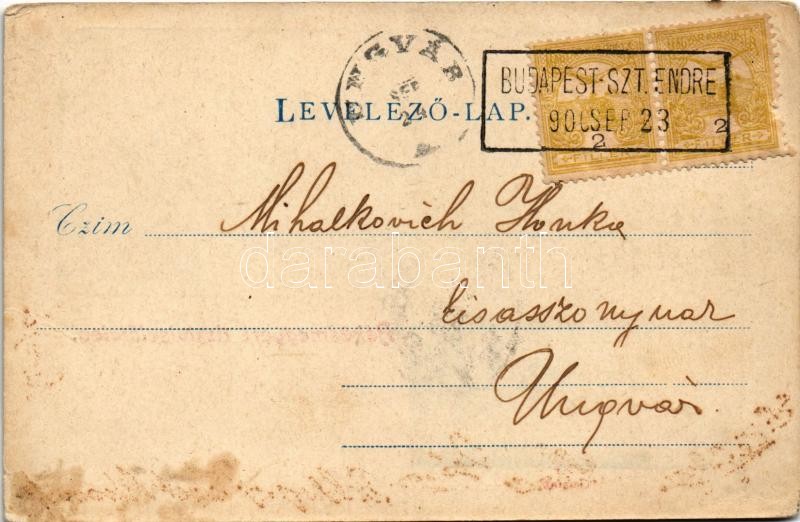 UNGVÁR
BUDAPEST-SZT.ENDRE
900SEP 23
LEVELEZŐ-LAP.
2 2
FILLÉR FILLÉR
Czim Mihalkovich Ilonka
darabanth
kisasszonynak
Ungvár.